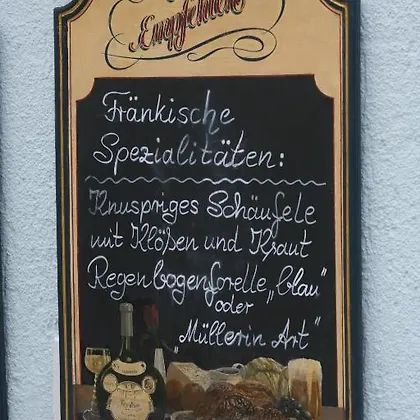 Empfehlen
Fränkische
Spezialitäten:
Knuspriges Schäufele
mit Klößen und Kraut
Regenbogenforelle „blau"
oder
„Müllerin Art"